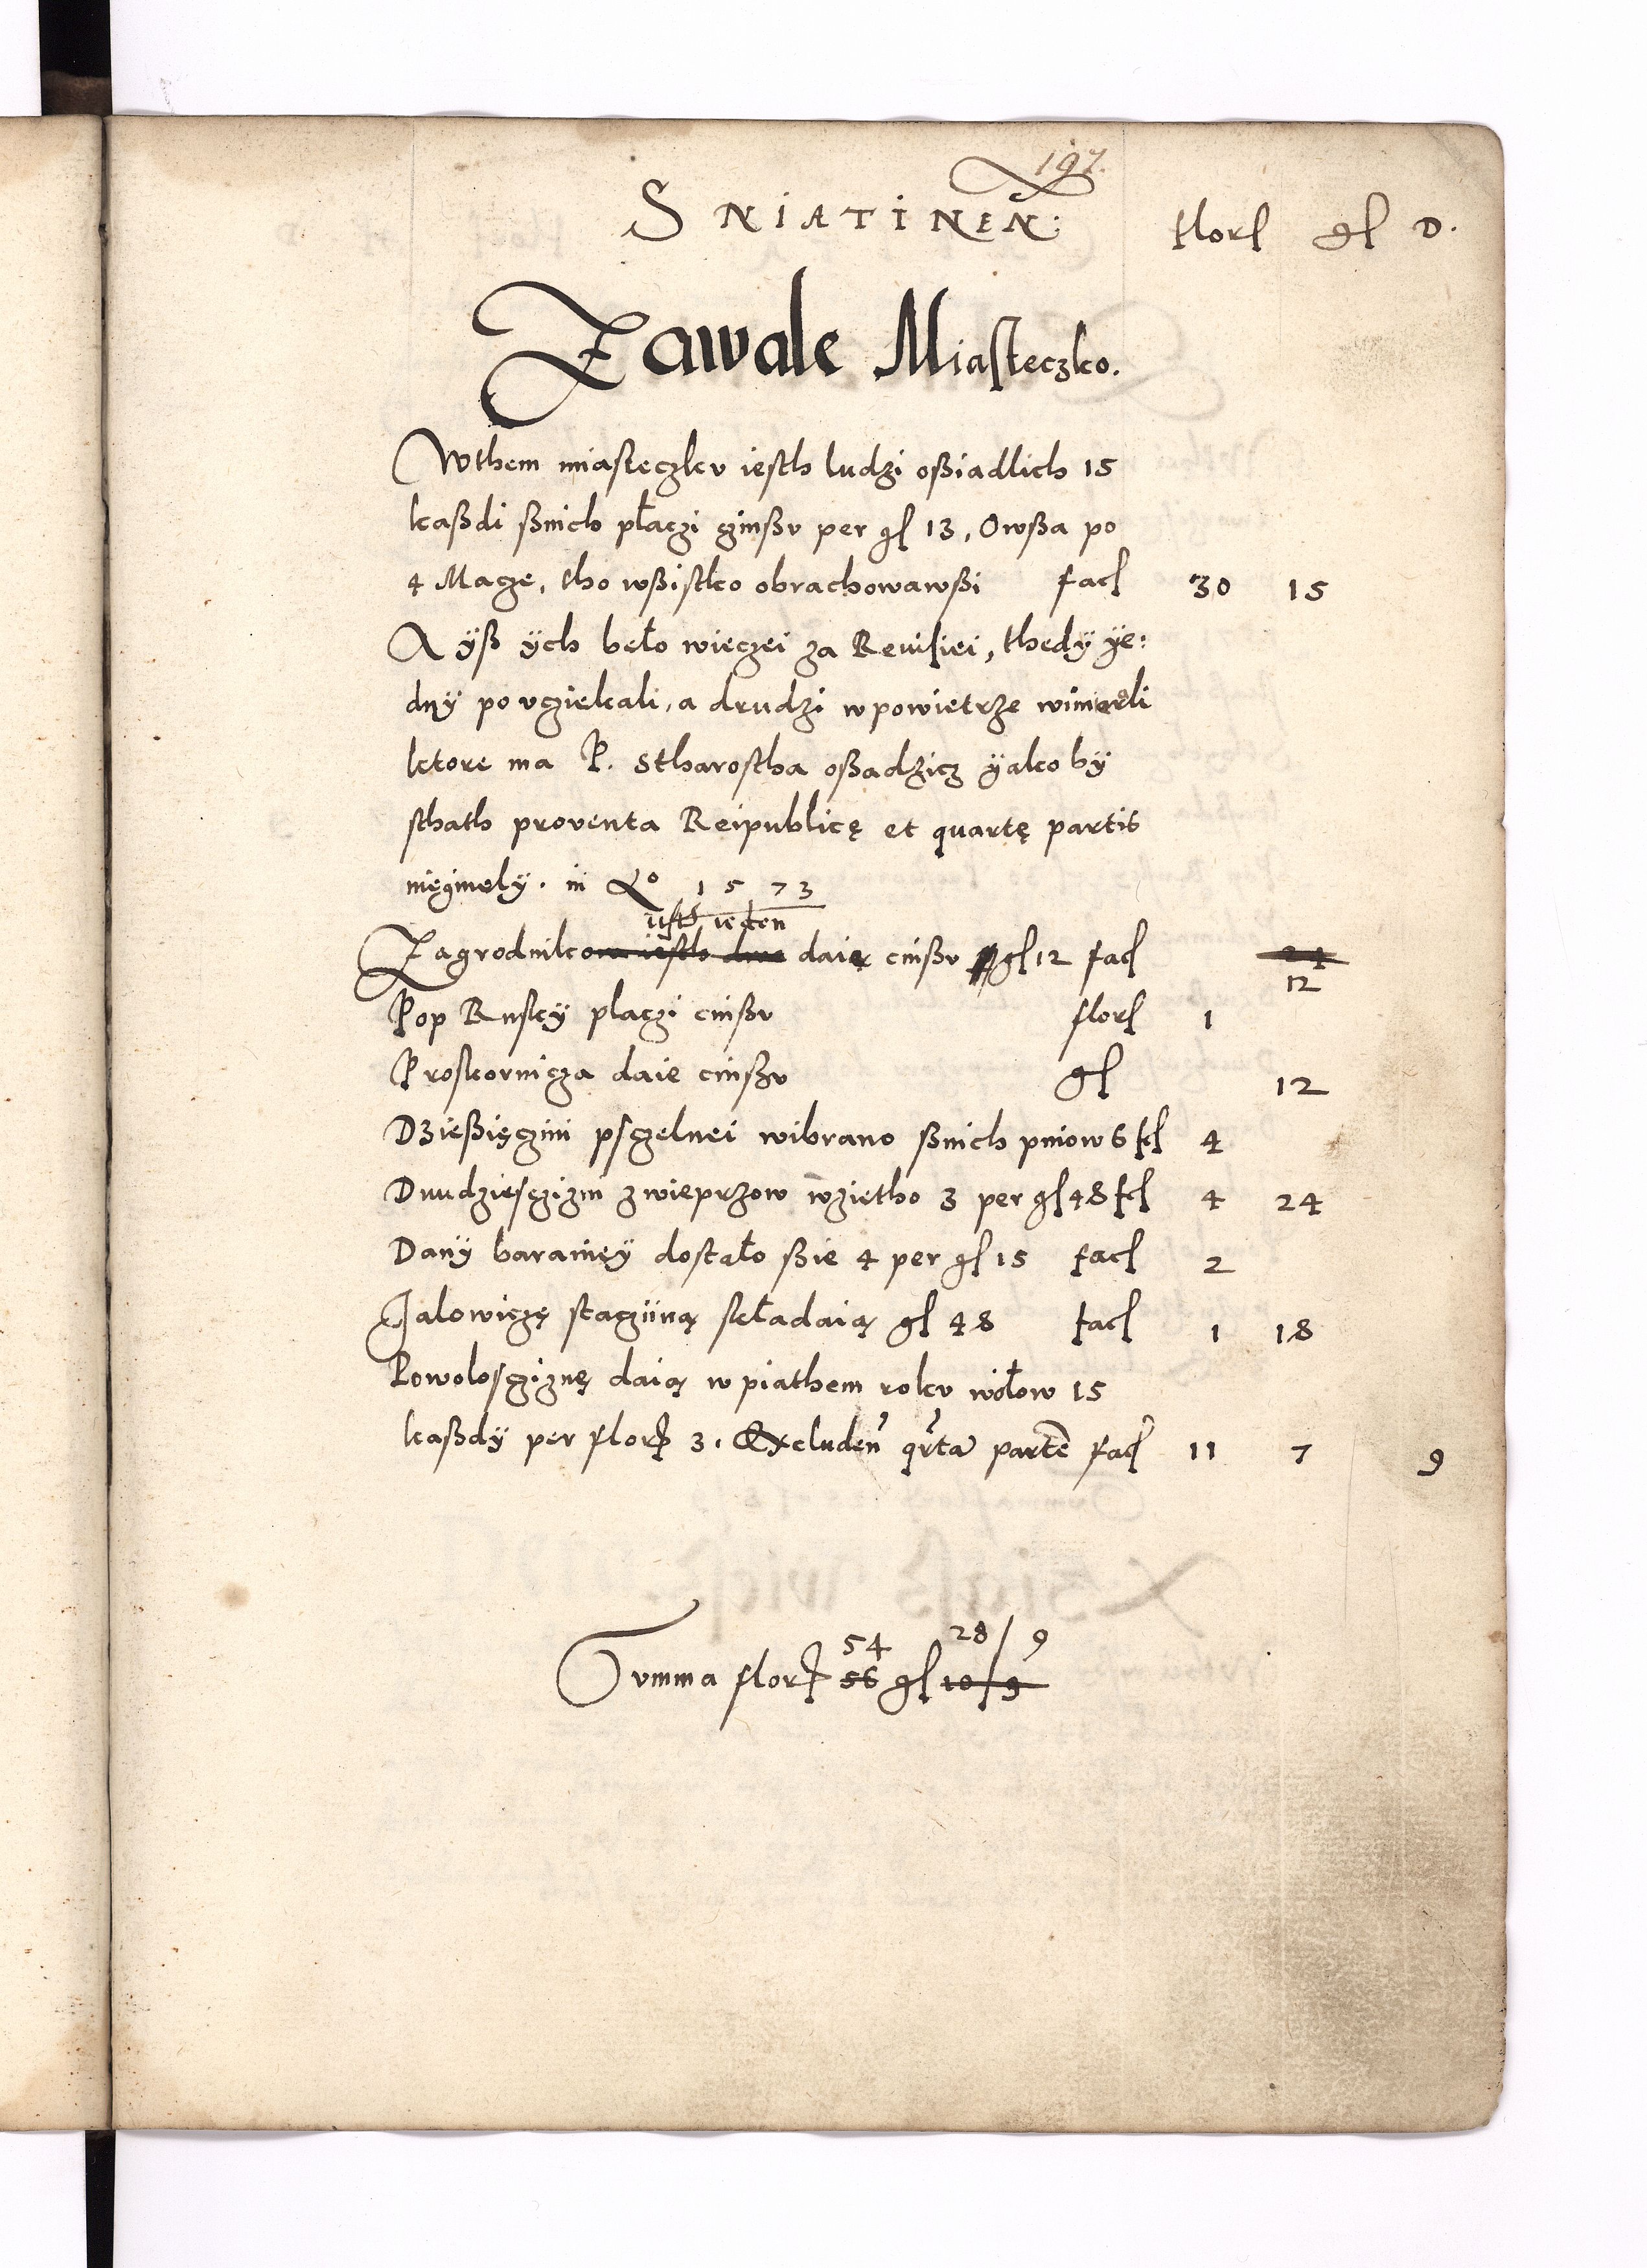 197.
SNIATINEN: florſ gſ D.
Zawale Miasteczko.
Wthem miasteczkv iesth ludzi oßiadlich 15
kaßdi ßnich płaczi czinßv per gſ 13, Owßa po
4 Macze, tho wßistko obrachowawßi facſ 30 15
A ÿß ÿch beło wieczei za Reuisiei, thedÿ ÿe:
dnÿ po vcziekali, a drudzi wpowietrze wimerli
ktore ma P. Stharostha oßadzicz ÿako bÿ
sthath proventa Reipublicę et quartę partis
nięginely. in Aº 1573
iesth ieden
Zagrodnikow iesth dwa daię cinßv gſ 12 facſ 24
12
Pop Ruskÿ placzi cinßv florſ 1
Proskornicza daie cinßv gſ 12
Dzießięczini psczelnei wibrano ßnich pniow 6 fcſ 4
Dwudziesczizni zwieprzow wzietho 3 per gſ 48 fcſ 4 24
Danÿ baranieÿ dostało ßie 4 per gſ 15 facſ 2
Jalowiczę staczÿiną składaią gſ 48 facſ 1 18
Powolosczięnę daią w piathem rokv wołow 15
kaßdÿ per florſ 3. Excluden qrta partē facſ 11 7 9
54 28/ 9
Summa florſ 56 gſ 10/9